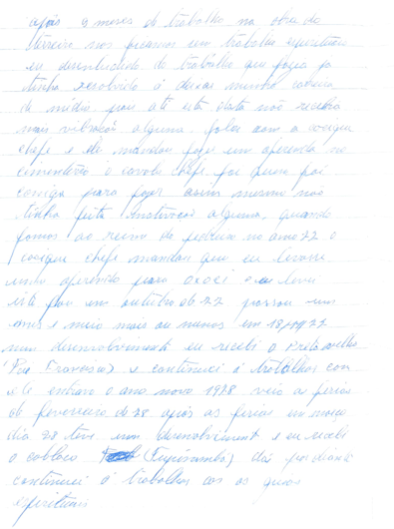 após 4 meses de trabalho na obra do
terreiro nos ficamos em trabalho espiritual
eu desenludido do trabalho que fazia ja
tinha resolvido á deixar minha carreira
de médio pois até esta data não recebia
mas vibração alguma falou com o cacique
chefe e ele mandou fazer um oferenda no
cimenterio o cacique chefe foi quem foi
comigo para fazer assim mesmo não
tinha feito Instrucão alguma, quando
fomos ao reino da pedreira no ano 77 o
cacique chefe mandou que eu levasse
uma oferenda para oxoci e eu levei
isto foi em outubro de 77 passou um
mes e meio mais ou menos em 18
num desenvolvimento eu recebi o Preto velho
(Pai Francisco) e continuei o trabalhos com
ele entrou o ano novo 1978 veio as ferias
de fevereiro de 78 após as ferias em março
dia 28 teve um desenvolvimento e eu recebi
o caboclo (Tupinambá) dai por diante
continuei o trabalhos com os guias
espirituais